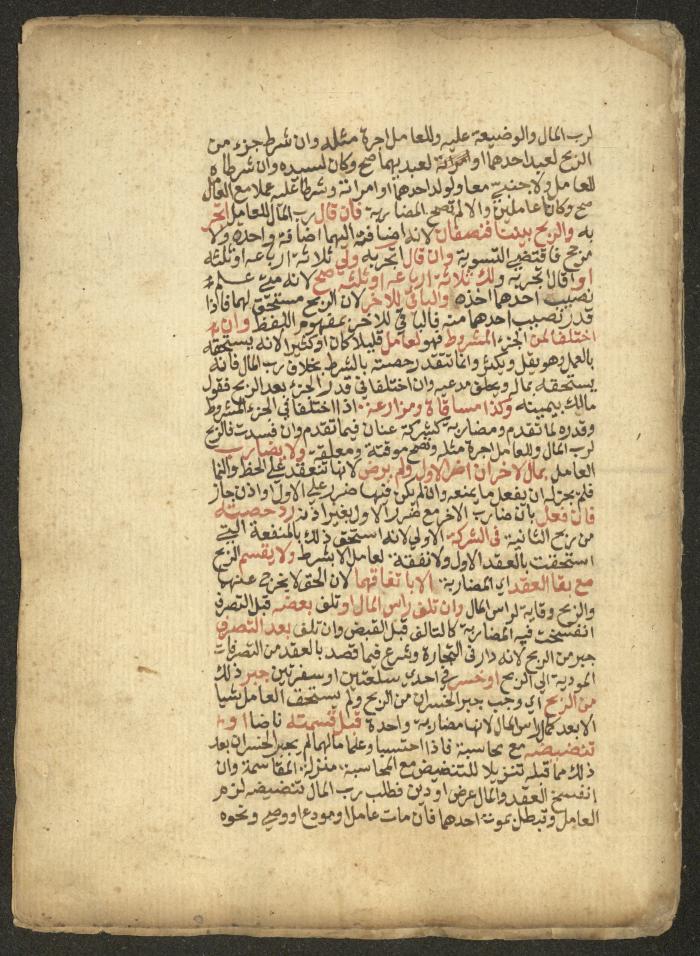 لرب المال والوضيعة عليه وللعامل اجرة مثله وان شرط جزء من
الربح لعبد احدهما او امراته لعبد بهما صح وكان لسيده وان شرطاه
للعامل ولاجنبي معا ولو ولد احدهما او امراته وشرطا عليه عملا مع العامل
صح وكانا عاملين والا لم تصح المضاربة فان قال رب المال للعامل اتجر
به والربح بيننا فنصفان لانه اضافه اليهما اضافة واحدة ولا
مرجح فاقتضى التسوية وان قال اتجر به ولي ثلاثة ارباعه او ثلثه
او قال اتجر به ولك ثلاثة ارباعه او ثلثه صح لانه متى علم
نصيب احدهما اخذه والباقي للاخر لان الربح مستحق لهما فاذا
قدر نصيب احدهما منه فالباقي للاخر بمفهوم اللفظ وان
اختلفا لمن الجزء المشروط فهو لعامل قليلا كان او كثيرا لانه يستحقه
بالعمل وهو يقل ويكثر وانما تتقدر حصته بالشرط بخلاف رب المال فانه
يستحقه بماله ويحلف مدعيه وان اختلفا في قدر الجزء بعد الربح فقول
مالك بيمينه وكذا مساقاة ومزارعة اذا اختلفا في الجزء المشروط
وقدره لما تقدم ومضاربة كشركة عنان فيما تقدم وان فسدت فالربح
لرب المال وللعامل اجرة مثله وتصح موقتة ومعلقة ولا يضارب
العامل بمال لاخر ان اضر الاول ولم يرض لانها تنعقد على الحظ والنما
فلم يجز له ان يفعل ما يمنعه وان لم يكن فيها ضرر على الاول او اذن جاز
فان فعل بان ضارب الاخر مع ضرر الاول بغير اذنه رد حصته
من ربح الثانية في الشركة الاولى لانه استحق ذلك بالمنفعة التي
استحقت بالعقد الاول ولا نفقة لعامل الا بشرط ولا يقسم الربح
مع بقا العقد اي المضاربة الا باتفاقهما لان الحق لا يخرج عنهما
والربح وقاية لراس المال وان تلف راس المال او تلف بعضه قبل التصرف
انفسخت فيه المضاربة كالتالف قبل القبض وان تلف بعد التصرف
جبر من الربح لانه دار في التجارة وشرع فيما قصد بالعقد من التصرفات
المودية الى الربح او خسر في احدى سلعتين او سفرتين جبر ذلك
من الربح اي وجب جبر الخسران من الربح ولم يستحق العامل شيا
الا بعد كمال راس المال لانها مضاربة واحدة قبل قسمته ناضا او
تنضيضه مع محاسبة فاذا احتسبا وعلما مالهما لم يجبر الخسران بعد
ذلك مما قبله تنزيلا للتنضيض مع المحاسبة منزلة المقاسمة وان
انفسخ العقد والمال عرض او دين فطلب رب المال تنضيضه لزم
العامل وتبطل بموت احدهما فان مات عامل او مودع او وصي ونحوه